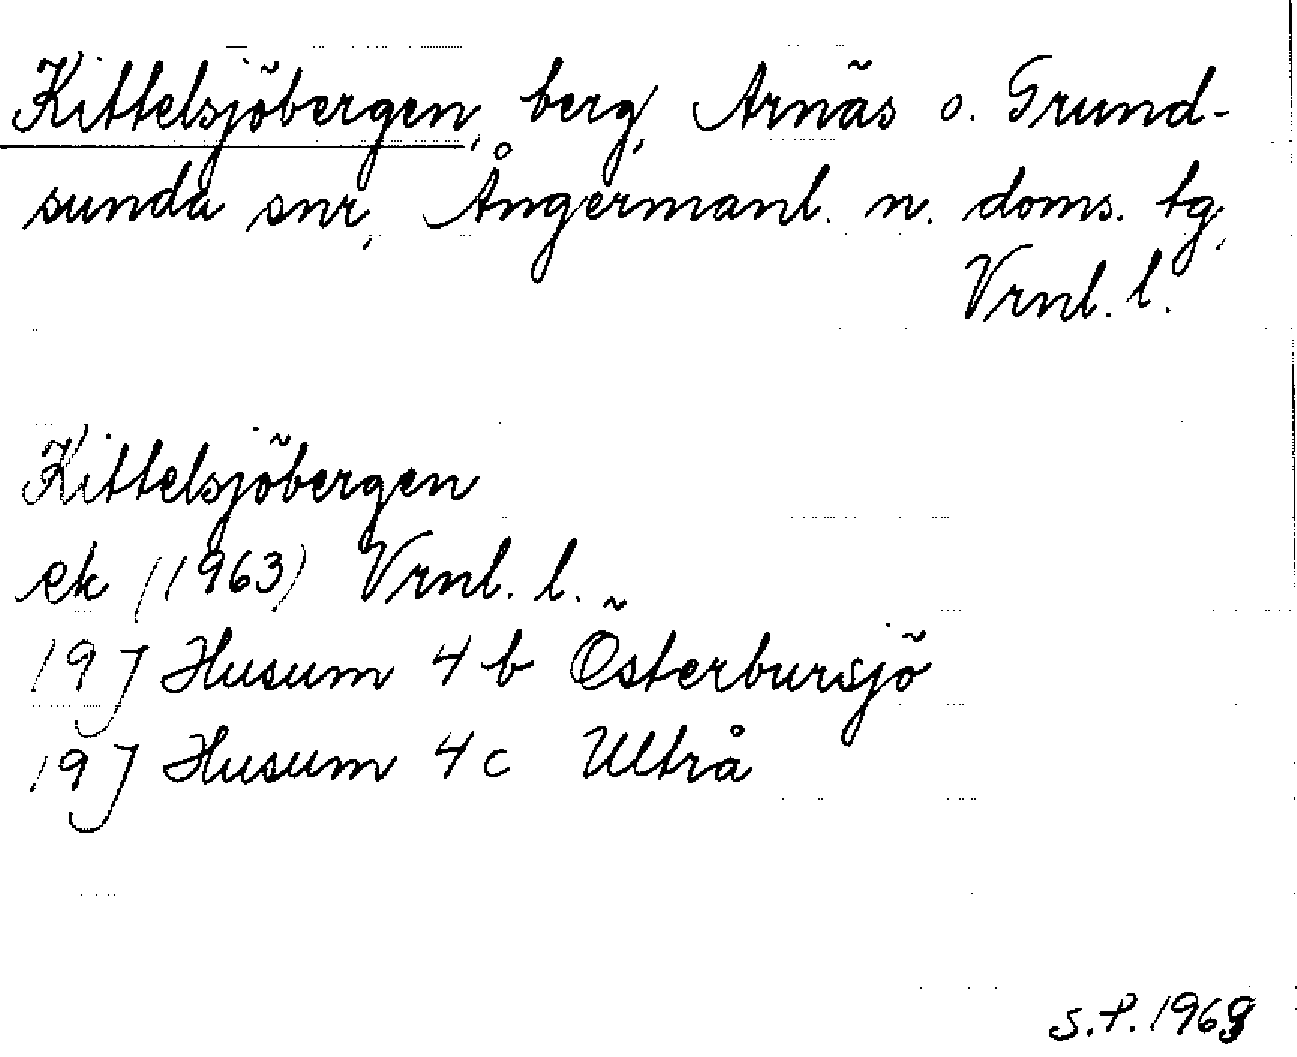 Kittelsjöbergen, berg, Arnäs o. Grund-
sunda snr, Ångermanl. n. doms. tg,
Vrnl. l.
Kittelsjöbergen
ek (1963) Vrnl. l.
19 J Husum 4 b Österbursjö
19 J Husum 4 c Ultrå
S.P. 1969